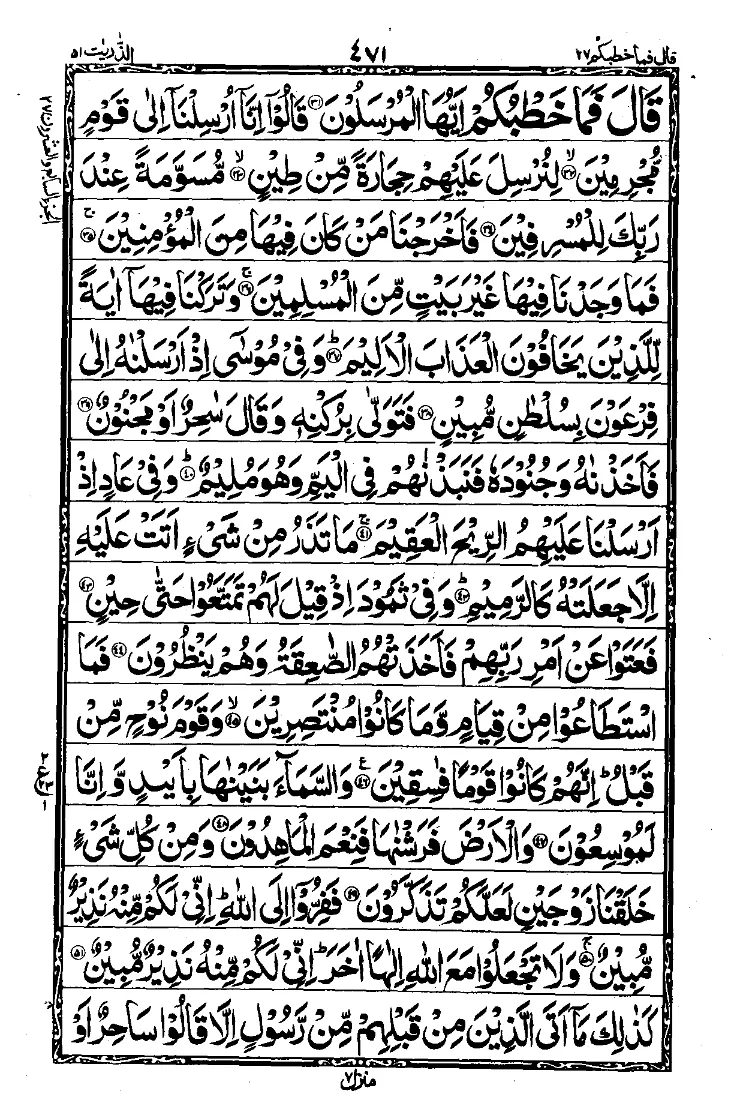 قال فما خطبكم ٢٧
٤٧١
الذّٰریٰت ٥١
قَالَ فَمَا خَطْبُكُمْ اَیُّهَا الْمُرْسَلُوْنَ ﴿۳۱﴾ قَالُوْۤا اِنَّاۤ اُرْسِلْنَاۤ اِلٰی قَوْمٍ
مُّجْرِمِیْنَ ﴿۳۲﴾ۙ لِنُرْسِلَ عَلَیْهِمْ حِجَارَةً مِّنْ طِیْنٍ ﴿۳۳﴾ۙ مُّسَوَّمَةً عِنْدَ
رَبِّكَ لِلْمُسْرِفِیْنَ ﴿۳۴﴾ فَاَخْرَجْنَا مَنْ كَانَ فِیْهَا مِنَ الْمُؤْمِنِیْنَ ﴿۳۵﴾ۚ
فَمَا وَجَدْنَا فِیْهَا غَیْرَ بَیْتٍ مِّنَ الْمُسْلِمِیْنَ ﴿۳۶﴾ۚ وَتَرَكْنَا فِیْهَاۤ اٰیَةً
لِّلَّذِیْنَ یَخَافُوْنَ الْعَذَابَ الْاَلِیْمَ ﴿۳۷﴾ؕ وَفِیْ مُوْسٰۤی اِذْ اَرْسَلْنٰهُ اِلٰی
فِرْعَوْنَ بِسُلْطٰنٍ مُّبِیْنٍ ﴿۳۸﴾ فَتَوَلّٰی بِرُكْنِهٖ وَقَالَ سٰحِرٌ اَوْ مَجْنُوْنٌ ﴿۳۹﴾
فَاَخَذْنٰهُ وَجُنُوْدَهٗ فَنَبَذْنٰهُمْ فِی الْیَمِّ وَهُوَ مُلِیْمٌ ﴿۴۰﴾ؕ وَفِیْ عَادٍ اِذْ
اَرْسَلْنَا عَلَیْهِمُ الرِّیْحَ الْعَقِیْمَ ﴿۴۱﴾ۚ مَا تَذَرُ مِنْ شَیْءٍ اَتَتْ عَلَیْهِ
اِلَّا جَعَلَتْهُ كَالرَّمِیْمِ ﴿۴۲﴾ؕ وَفِیْ ثَمُوْدَ اِذْ قِیْلَ لَهُمْ تَمَتَّعُوْا حَتّٰی حِیْنٍ ﴿۴۳﴾
فَعَتَوْا عَنْ اَمْرِ رَبِّهِمْ فَاَخَذَتْهُمُ الصّٰعِقَةُ وَهُمْ یَنْظُرُوْنَ ﴿۴۴﴾ فَمَا
اسْتَطَاعُوْا مِنْ قِیَامٍ وَّمَا كَانُوْا مُنْتَصِرِیْنَ ﴿۴۵﴾ۙ وَقَوْمَ نُوْحٍ مِّنْ
قَبْلُ ؕ اِنَّهُمْ كَانُوْا قَوْمًا فٰسِقِیْنَ ﴿۴۶﴾ ع وَالسَّمَآءَ بَنَیْنٰهَا بِاَیْىدٍ وَّاِنَّا
لَمُوْسِعُوْنَ ﴿۴۷﴾ وَالْاَرْضَ فَرَشْنٰهَا فَنِعْمَ الْمٰهِدُوْنَ ﴿۴۸﴾ وَمِنْ كُلِّ شَیْءٍ
خَلَقْنَا زَوْجَیْنِ لَعَلَّكُمْ تَذَكَّرُوْنَ ﴿۴۹﴾ فَفِرُّوْۤا اِلَی اللّٰهِ ؕ اِنِّیْ لَكُمْ مِّنْهُ نَذِیْرٌ
مُّبِیْنٌ ﴿۵۰﴾ۚ وَلَا تَجْعَلُوْا مَعَ اللّٰهِ اِلٰهًا اٰخَرَ ؕ اِنِّیْ لَكُمْ مِّنْهُ نَذِیْرٌ مُّبِیْنٌ ﴿۵۱﴾
كَذٰلِكَ مَاۤ اَتَی الَّذِیْنَ مِنْ قَبْلِهِمْ مِّنْ رَّسُوْلٍ اِلَّا قَالُوْا سَاحِرٌ اَوْ
منزل ٧
الجزء السابع والعشرون ٢٧